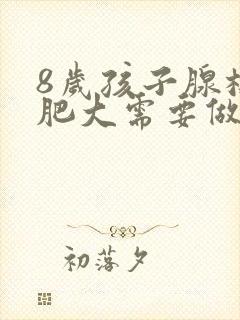 8岁孩子腺样
肥大需要做
初落夕